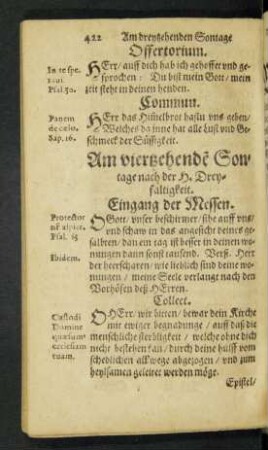 422 Am dreytzehenden Sontage
Offertorium.
In te spe-
raui
Psal. 30.
HErr/ auff dich hab ich gehoffet vnd ge-
sprochen: Du bist mein Gott/ mein
zeit steht in deinen henden.
Commun.
Panem
de cœlo.
Sap. 16.
HErr das Himelbrot hastu vns geben/
Welches da inne hat alle Lust vnd Ge-
schmeck der Süssigkeit.
Am viertzehendē Son-
tage nach der H. Drey-
faltigkeit.
Eingang der Messen.
Protector
nr̄ aspice.
Psal. 83
Ibidem.
O Gott/ vnser beschirmer/ sihe auff vns/
vnd schaw in das angesicht deines ge-
salbten/ dan ein tag ist besser in deinen wo-
nungen dann sonst tausend. Verß. Herr
der heerscharen/ wie lieblich sind deine wo-
nungen/ meine Seele verlanget nach den
Vorhöfen deß HErren.
Collect.
Custodi
Domine
quæsumus
ecclesiam
tuam.
O HErr/ wir bitten/ bewar dein Kirche
mit ewiger begnadunge/ auff das die
menschliche sterbligkeit/ welche ohne dich
nicht bestehen kan/ durch deine hülff vom
schedlichen allwege abgezogen/ vnd zum
heylsamen geleitet werden möge.
Epistel/